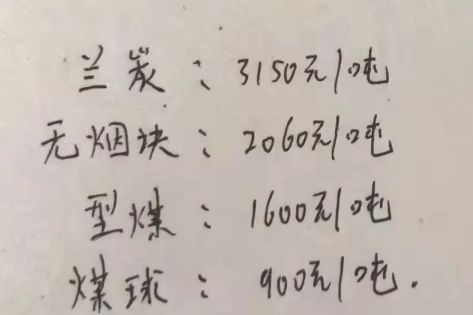 兰炭：3150元/吨
无烟块：2060元/吨
型煤：1600元/吨
煤球：900元/吨.